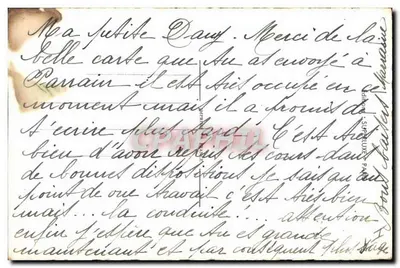 Ma petite Dany. Merci de la
belle carte que tu as envoyé à
Parrain il est très occupé en ce
moment mais il a promis de
t'écrire plus tard. C'est très
bien d'avoir repris tes cours dans
de bonnes dispositions je sais qu'au
point de vue travail c'est très bien
mais... la conduite!.... attention
enfin j'espère que tu es grande
maintenant et par conséquent plus sage